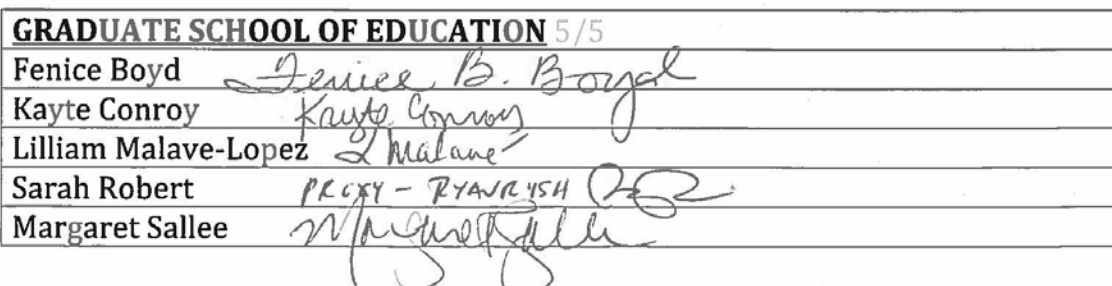 GRADUATE SCHOOL OF EDUCATION 5/5
Fenice Boyd Fenice B. Boyd
Kayte Conroy Kayte Conroy
Lilliam Malave-Lopez L Malavé
Sarah Robert PROXY - RYAN RISH
Margaret Sallee Margaret Sallee